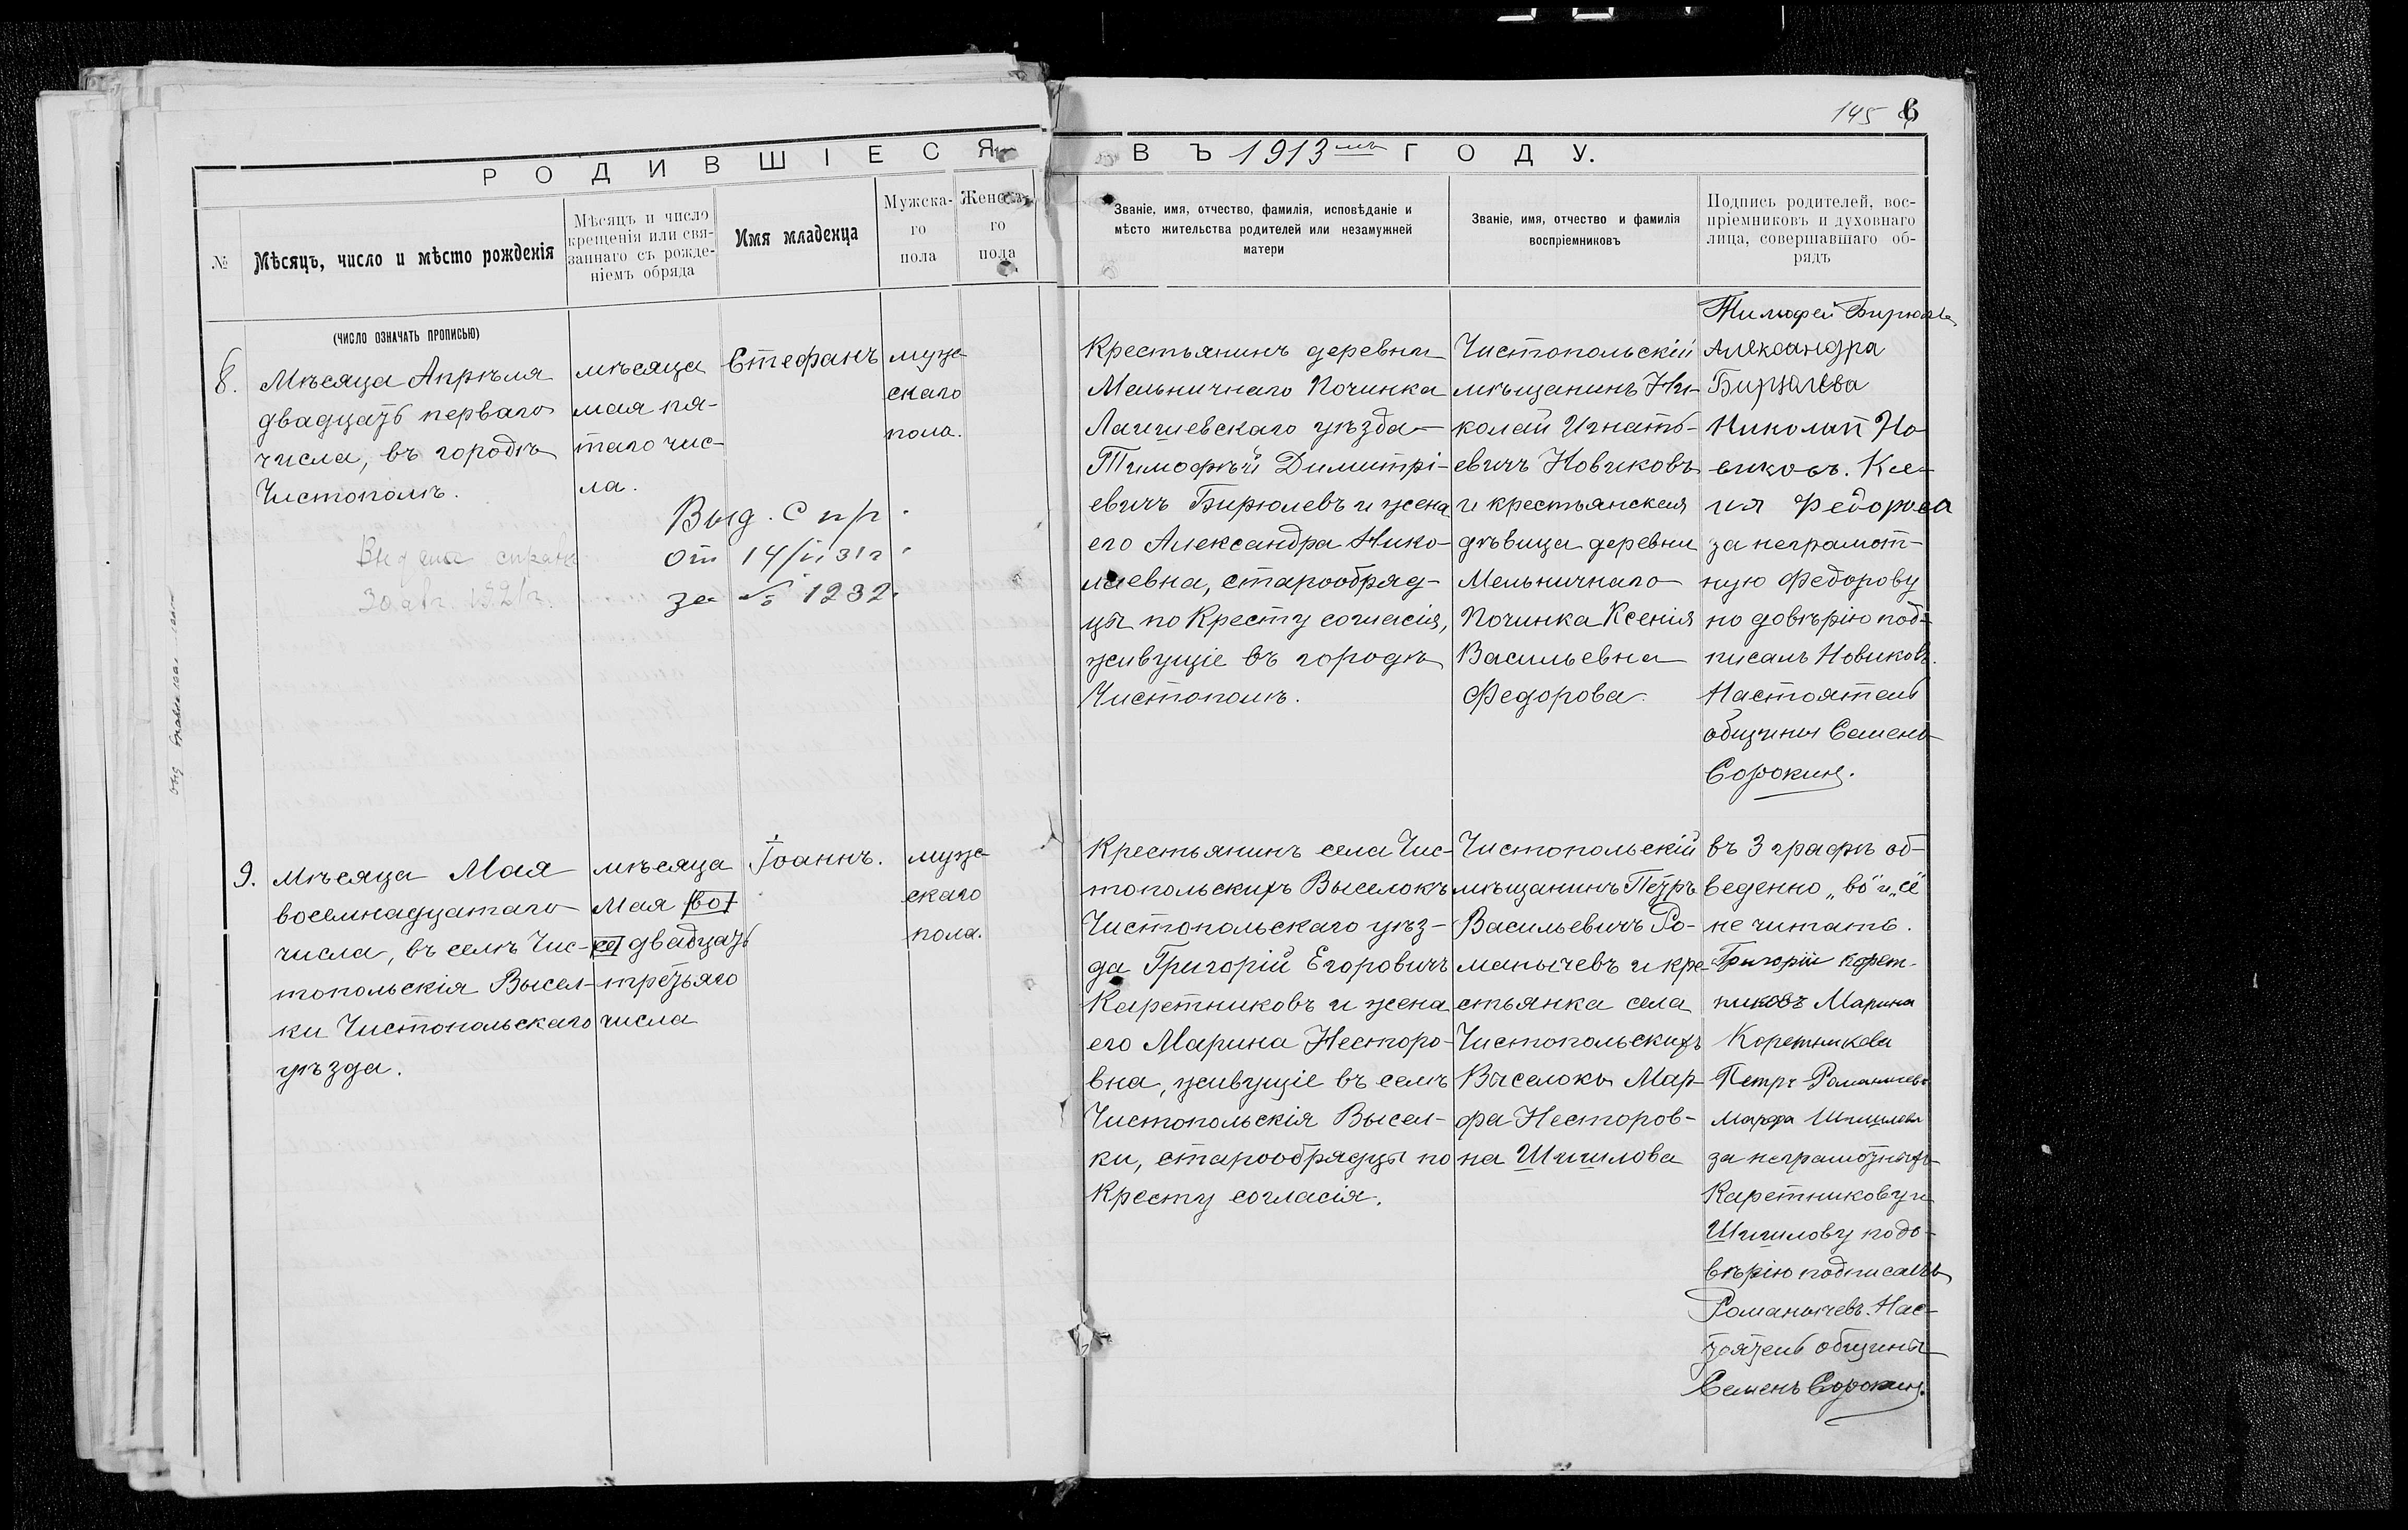 145 6
РОДИВШІЕСЯ
ВЪ 1913мъ ГОДУ.
№
Мѣсяцъ, число и мѣсто рожденія
Мѣсяцъ и число
крещенія или свя-
заннаго съ рожде-
ніемъ обряда
Имя младенца
Мужска-
го
пола
Женска-
го
пола
Званіе, имя, отчество, фамилія, исповѣданіе и
мѣсто жительства родителей или незамужней
матери
Званіе, имя, отчество и фамилія
воспріемниковъ
Подпись родителей, вос-
пріемниковъ и духовнаго
лица, совершавшаго об-
рядъ
(ЧИСЛО ОЗНАЧАТЬ ПРОПИСЬЮ)
8.
Мѣсяца Апрѣля
двадцать перваго
числа, въ городѣ
Чистополѣ.
мѣсяца
мая пя-
таго чис-
ла.
Стефанъ
муж-
скаго
пола.
Выд. Спр.
от 14/II 31г.
за № 1232.
Выдана справк
30 авг. 1921г.
Крестьянинъ деревни
Мельничнаго Починка
Лаишевскаго уѣзда
Тимофѣй Димитрі-
евичъ Бирюлевъ и жена
его Александра Нико-
лаевна, старообряд-
цы по Кресту согласія,
живущіе въ городѣ
Чистополѣ.
Чистопольскій
мѣщанинъ Ни-
колай Игнать-
евичъ Новиковъ
и крестьянская
дѣвица деревни
Мельничнаго
Починка Ксенія
Васильевна
Федорова.
Тимофей Бирюлев
Александра
Бирюлева
Николай Но
виковъ. Ксе-
нія Федорова
за неграмот-
ную Федорову
по довѣрію под-
писалъ Новиковъ.
Настоятель
общины Семенъ
Сорокинъ.
9.
Мѣсяца Мая
восемнадцатаго
числа, въ селѣ Чис-
топольскія Высел-
ки Чистопольскаго
уѣзда.
мѣсяца
Мая во
се двадцать
третьяго
числа
Іоаннъ.
муж-
скаго
пола.
Крестьянинъ села Чис-
топольскихъ Выселокъ
Чистопольскаго уѣз-
да Григорій Егоровичъ
Каретниковъ и жена
его Марина Несторо-
вна, живущіе въ селѣ
Чистопольскія Высел-
ки, старообрядцы по
Кресту согласія.
Чистопольскій
мѣщанинъ Петръ
Васильевичъ Ро-
манычевъ и кре-
стьянка села
Чистопольскихъ
Выселокъ Мар-
фа Несторов-
на Шишлова
въ 3 графѣ об-
ведено „во" и „се"
не читать.
Григорій Корет-
никовъ Марина
Коретникова
Петръ Романычевъ
Марфа Шишлова
за неграмотныхъ
Каретникову и
Шишлову по до-
вѣрію подписалъ
Романычевъ. Нас-
тоятель общины
Семенъ Сорокинъ.